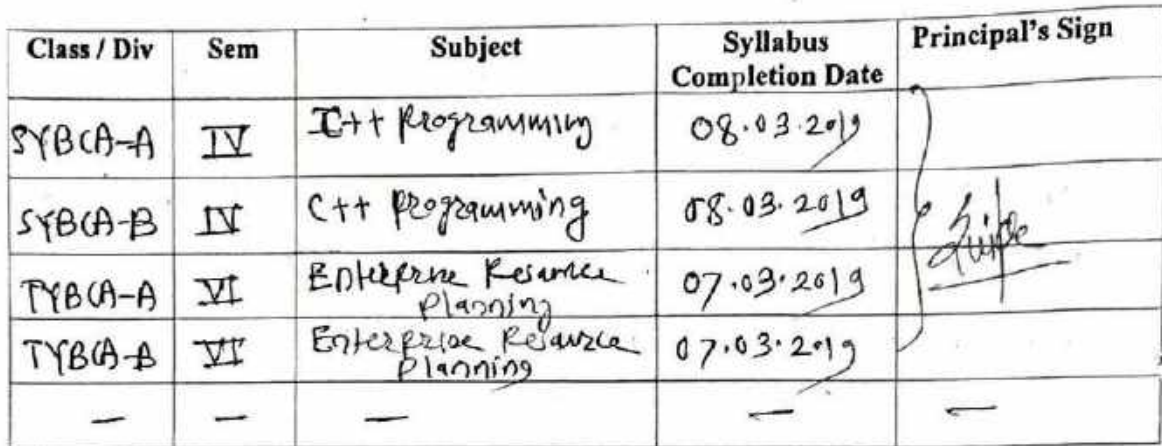 Class / Div Sem Subject Syllabus Completion Date Principal's Sign
SYBCA-A IV C++ Programming 08.03.2019
SYBCA-B IV C++ Programming 08.03.2019
TYBCA-A VI Enterprise Resource
Planning 07.03.2019
TYBCA-B VI Enterprise Resource
Planning 07.03.2019
— — — — —